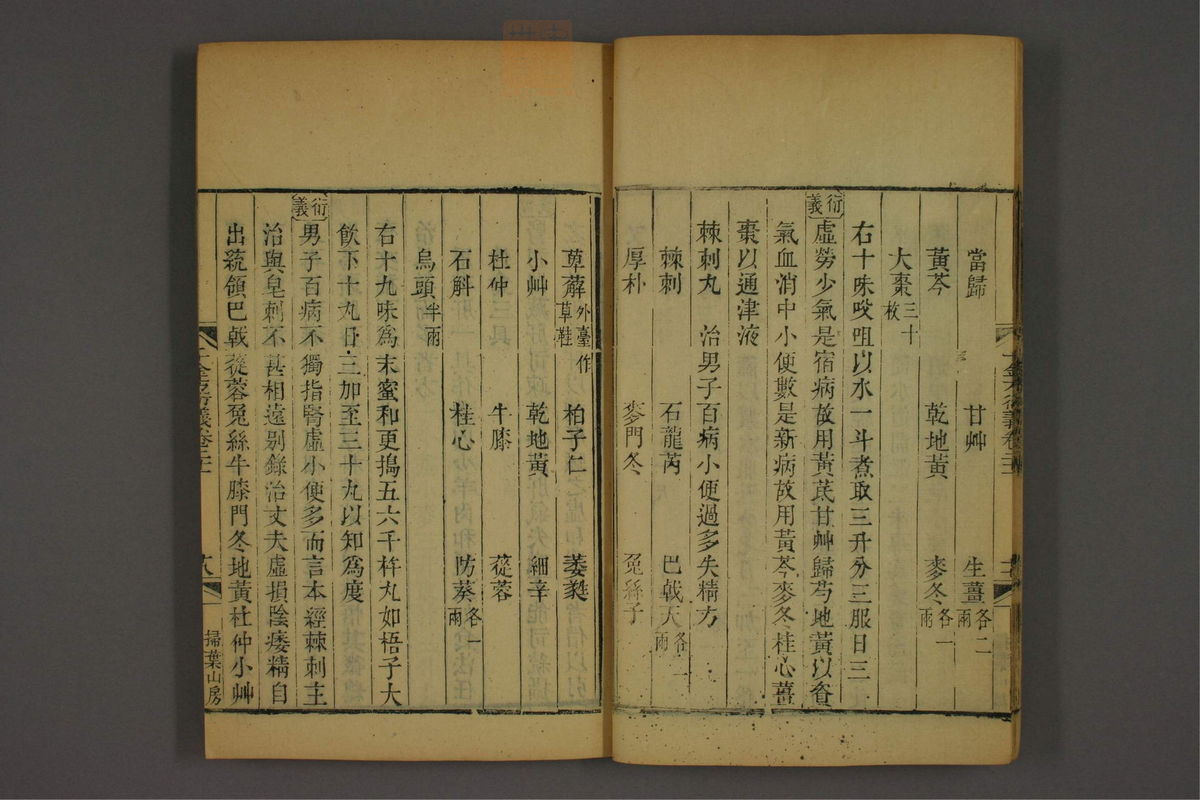 當歸 甘艸 生薑各二兩
黃芩 乾地黃 麥冬各一兩
大棗三十枚
右十味㕮咀以水一斗煮取三升分三服日三
衍義
虛勞少氣是宿病故用黃芪甘艸歸芍地黃以養
氣血消中小便數是新病故用黃芩麥冬桂心薑
棗以通津液
棘刺丸 治男子百病小便過多失精方
棘刺 石龍芮 巴戟天各二兩
厚朴 麥門冬 兔絲子
萆薢外臺作草鞋 柏子仁 萎蕤
小艸 乾地黃 細辛
杜仲 牛膝 蓯蓉
石斛 桂心 防葵各一兩
烏頭半兩
右十九味為末蜜和更搗五六千杵丸如梧子大
飲下十丸日三加至三十丸以知為度
衍義
男子百病不獨指腎虛小便多而言本經棘刺主
治與皂刺不甚相遠别錄治丈夫虛損陰痿精自
出統領巴戟蓯蓉兔絲牛膝門冬地黃杜仲小艸
掃葉山房